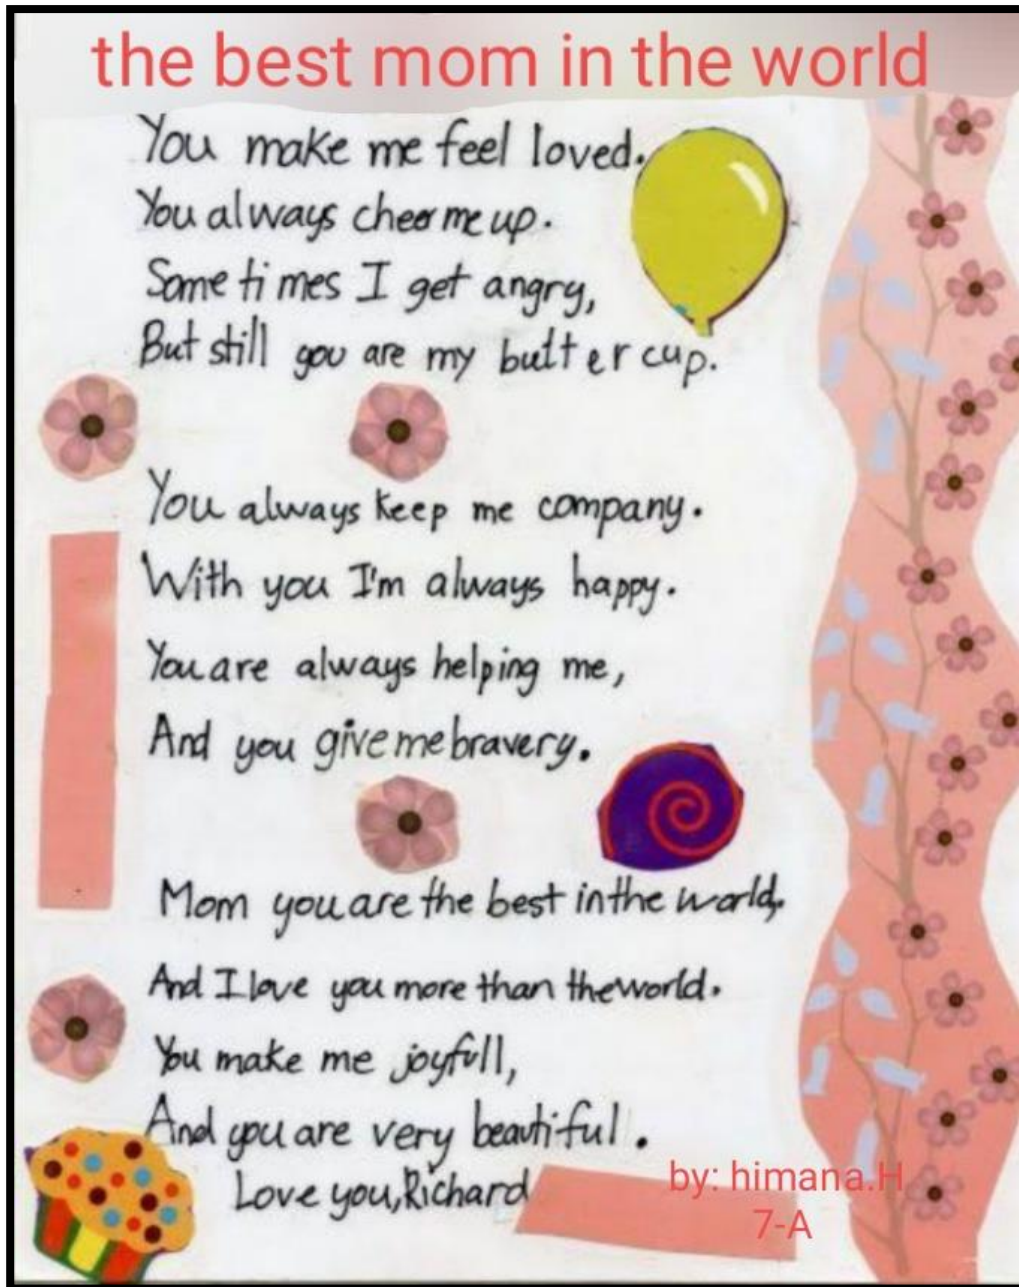 the best mom in the world
You make me feel loved.
You always cheer me up.
Sometimes I get angry,
But still you are my buttercup.
You always keep me company.
With you I'm always happy.
You are always helping me,
And you give me bravery.
Mom you are the best in the world,
And I love you more than the world.
You make me joyfull,
And you are very beautiful.
Love you, Richard
by: himana.H
7-A